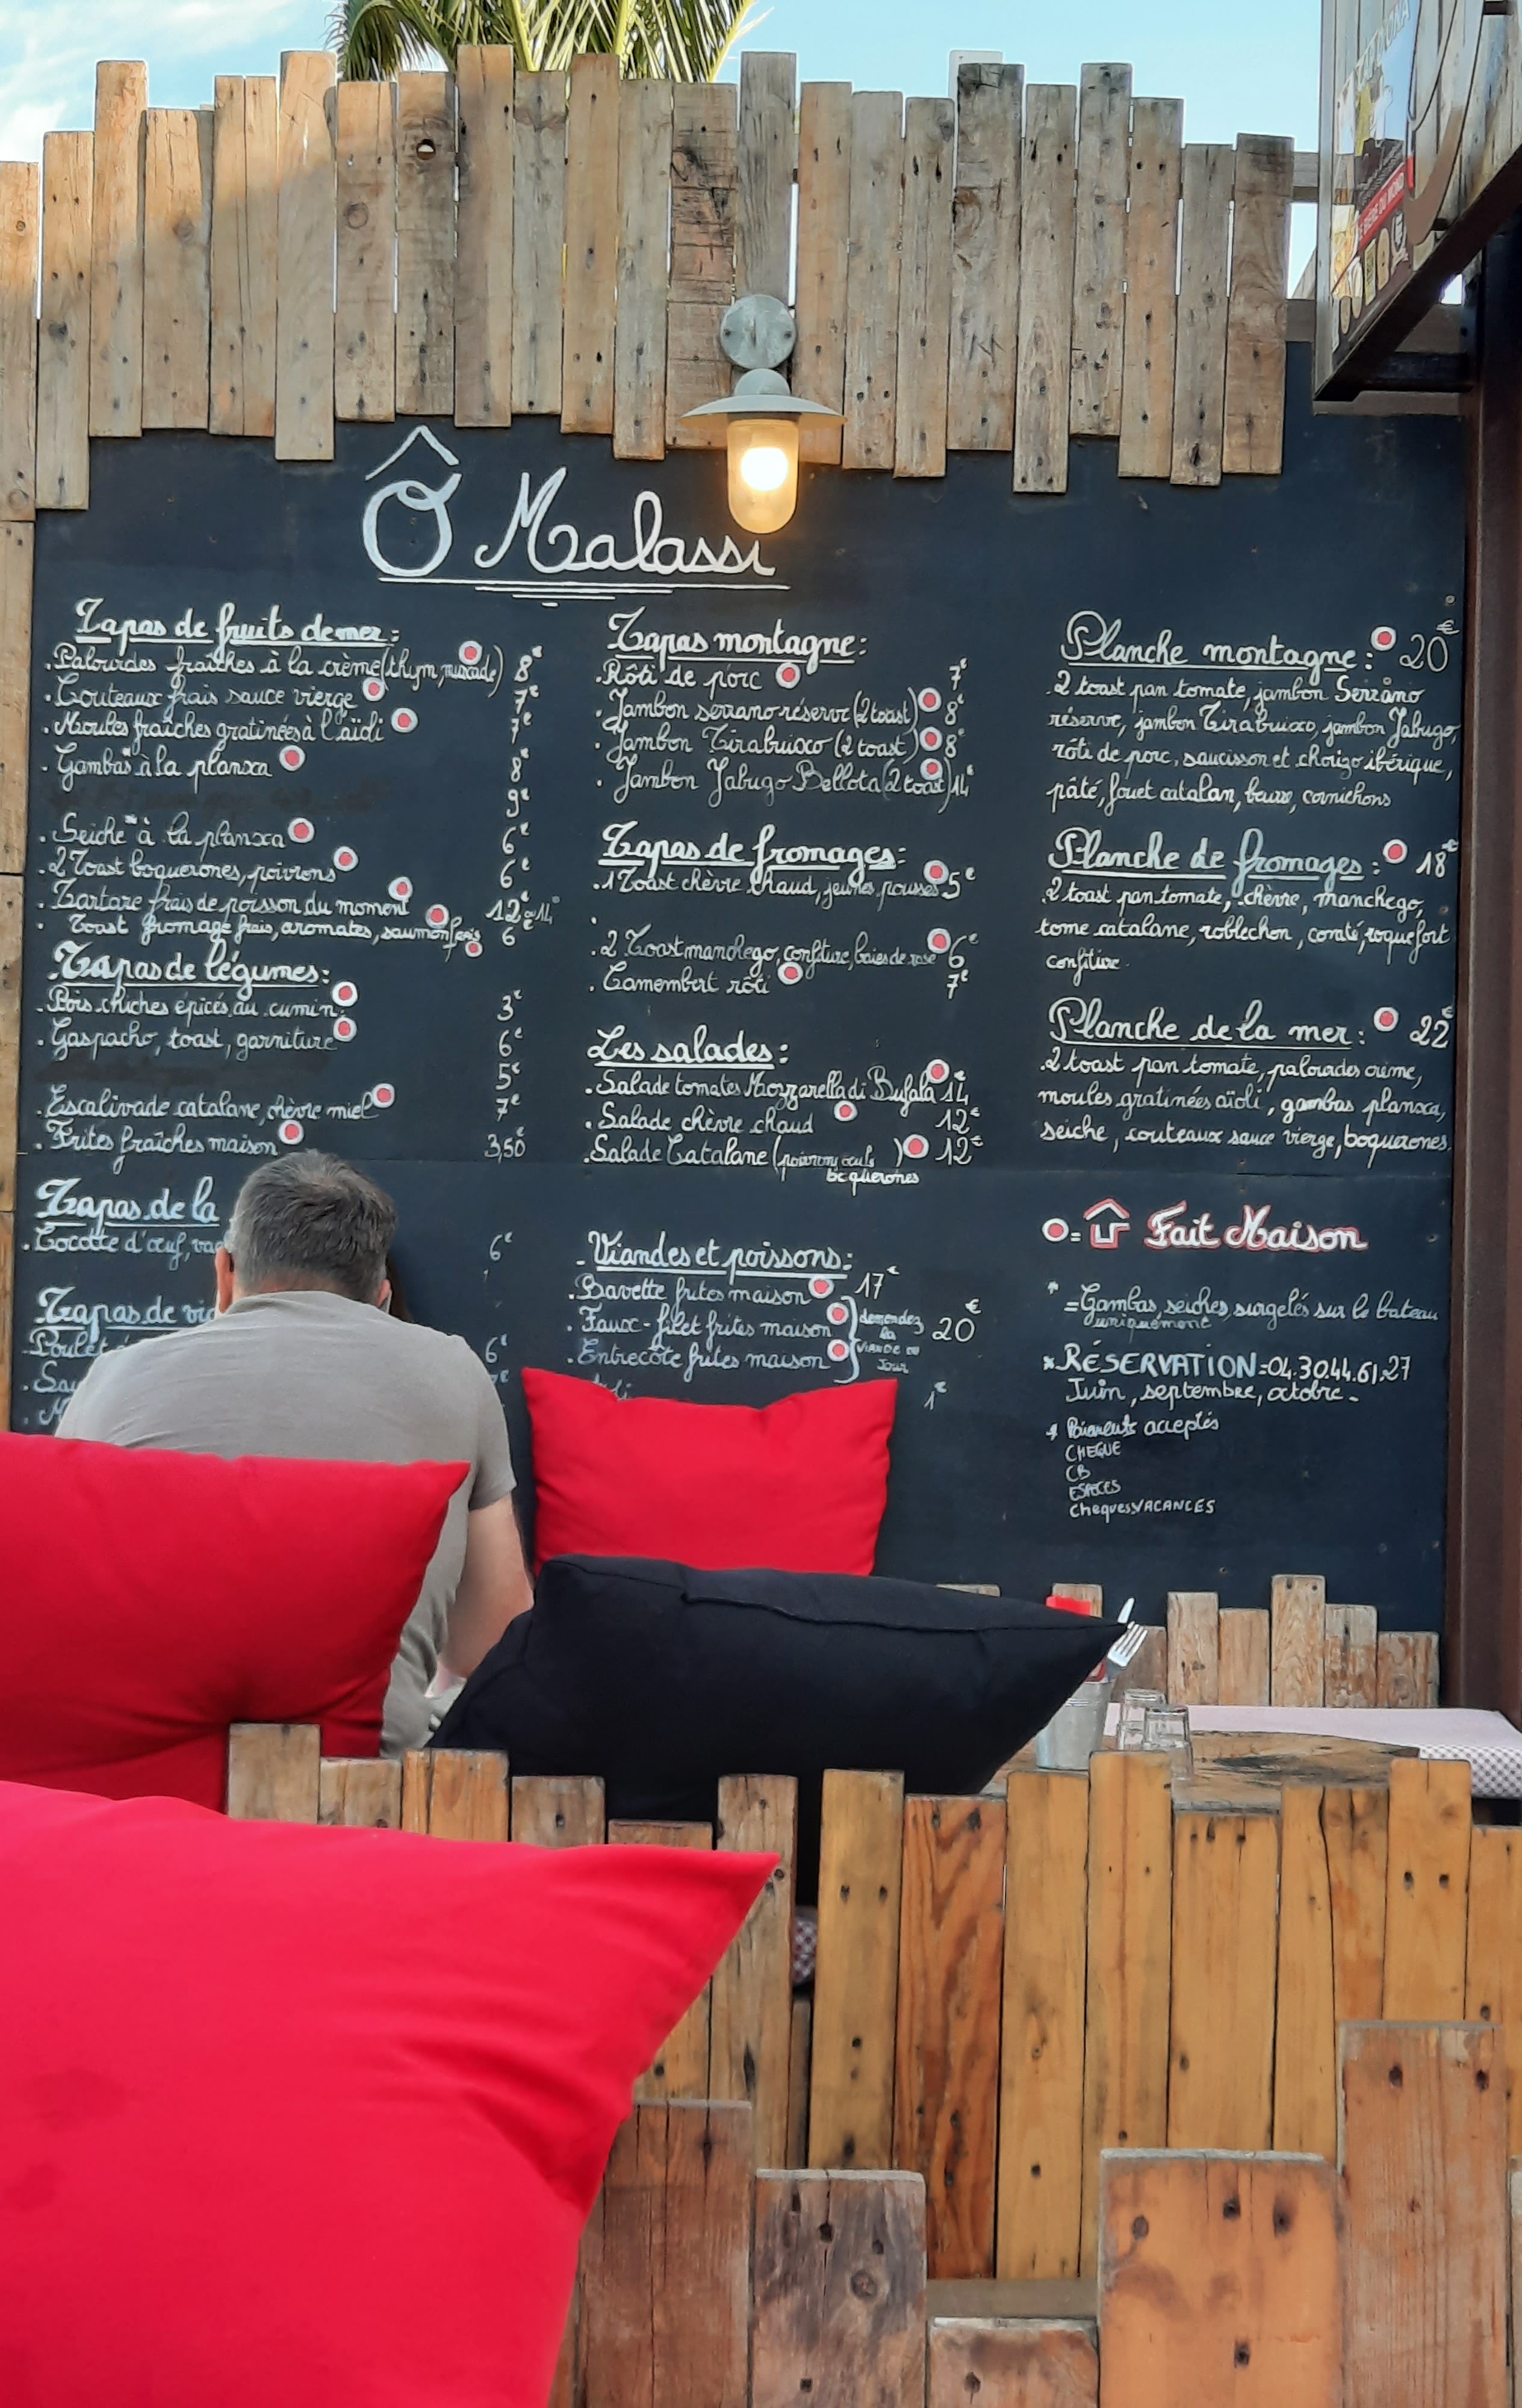 Ô Malassi
Tapas de fruits de mer:
.Palourdes fraîches à la crème (thym, muscade) 8€
.Couteaux frais sauce vierge 7€
.Moules fraîches gratinées à l'aïoli 7€
.Gambas* à la planxa 8€
9€
.Seiche* à la planxa 6€
.2 Toast boquerones, poivrons 6€
.Tartare frais de poisson du moment 12€ 14€
Toast fromage frais, aromates, saumon 6€
Tapas de légumes:
.Pois chiches épicés au cumin. 3€
.Gaspacho, toast, garniture 6€
5€
.Escalivade catalane, chèvre miel 7€
.Frites fraîches maison 3,50€
Tapas de la
.Cocotte d'œuf, 6€
Tapas de
Poulet 6€
Tapas montagne:
.Rôti de porc 7€
.Jambon serrano réserve (2 toast) 8€
.Jambon Tirabuixo (2 toast) 8€
.Jambon Jabugo Bellota (2 toast) 14€
Tapas de fromages:
.1 Toast chèvre chaud, jeunes pousses 5€
.
.2 Toast manchego, confiture, baies de rose 6€
.Camembert rôti 7€
Les salades:
.Salade tomates Mozzarella di Bufala 14€
.Salade chèvre chaud 12€
.Salade Catalane (poivron, oeufs 12€
boquerones
- Viandes et poissons:
.Bavette frites maison 17€
.Faux-filet frites maison
.Entrecôte frites maison
demandez
la
VIANDE DU
JOUR
20€
1€
Planche montagne: 20€
.2 toast pan tomate, jambon Serrano
réserve, jambon Tirabuixo, jambon Jabugo,
rôti de porc, saucisson et chorizo ibérique,
pâté, fouet catalan, beurre, cornichons
Planche de fromages: 18€
.2 toast pan tomate, chèvre, manchego,
tome catalane, roblechon, comté, roquefort
confiture.
Planche de la mer: 22€
.2 toast pan tomate, palourdes crème,
moules gratinées aïoli, gambas planxa,
seiche, couteaux sauce vierge, boquerones.
= Fait Maison
* = Gambas, seiches, surgelés sur le bateau
uniquement
* RÉSERVATION = 04.30.44.61.27
Juin, septembre, octobre -
* Paiements acceptés
CHEQUE
CB
ESPECES
Cheques VACANCES